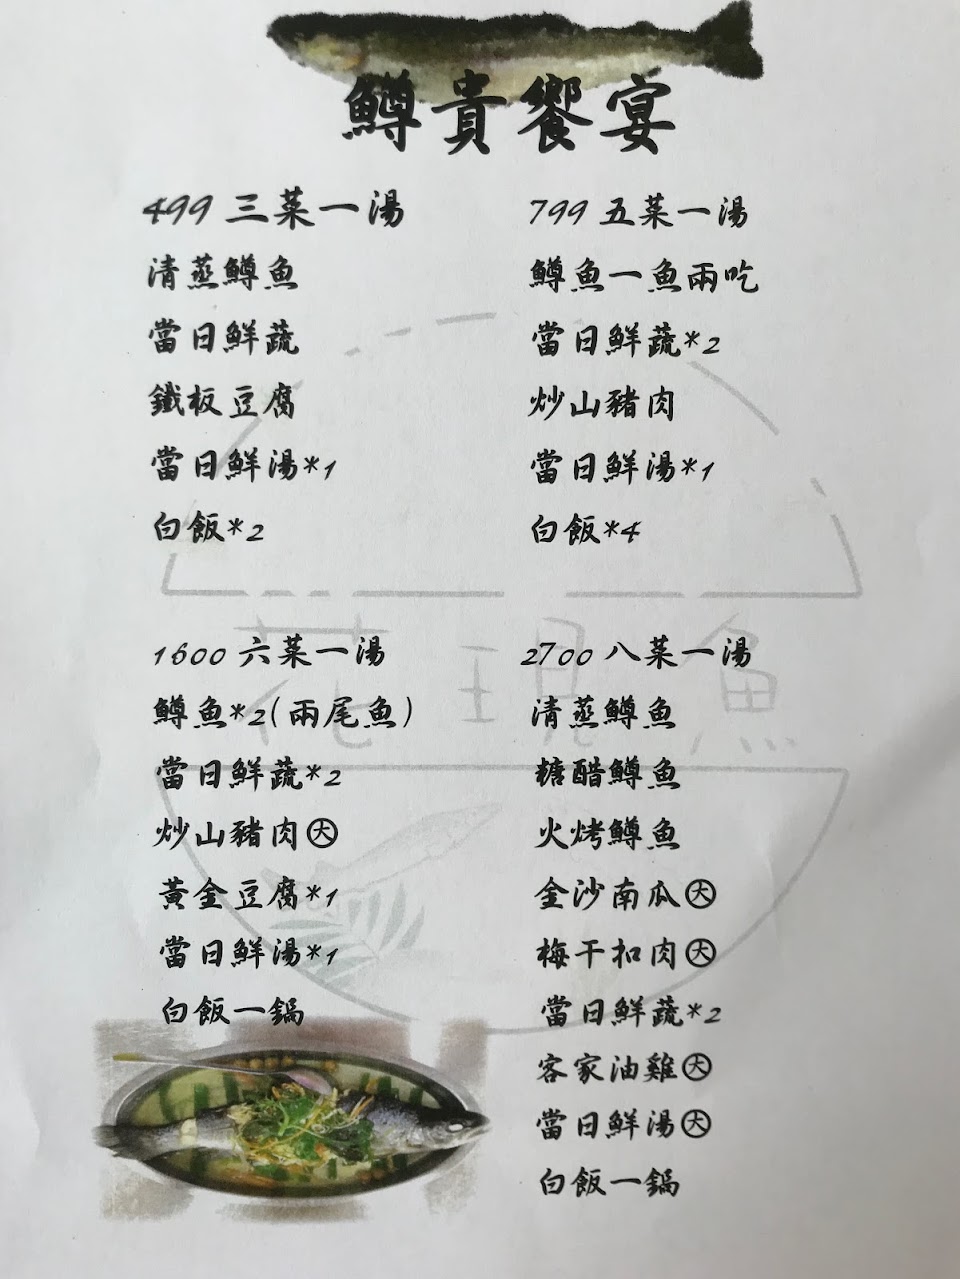 鱒貴饗宴
499 三菜一湯
清蒸鱒魚
當日鮮蔬
鐵板豆腐
當日鮮湯*1
白飯*2
799 五菜一湯
鱒魚一魚兩吃
當日鮮蔬*2
炒山豬肉
當日鮮湯*1
白飯*4
1600 六菜一湯
鱒魚*2(兩尾魚)
當日鮮蔬*2
炒山豬肉㊛
黃金豆腐*1
當日鮮湯*1
白飯一鍋
2700 八菜一湯
清蒸鱒魚
糖醋鱒魚
火烤鱒魚
金沙南瓜大
梅干扣肉大
當日鮮蔬*2
客家油雞大
當日鮮湯大
白飯一鍋
花現魚